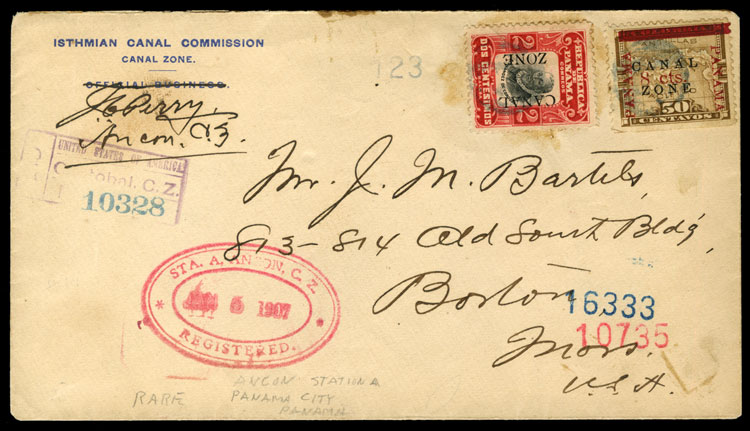 ISTHMIAN CANAL COMMISSION
CANAL ZONE.
OFFICIAL BUSINESS.
J C Perry.
Ancon. C.Z.
123
REPUBLICA
DE
PANAMA
CORREOS
2
DOS CENTESIMOS
CANAL
ZONE
PANAMA
PANAMA
CANAL
8 cts.
ZONE
50
CENTAVOS
UNITED STATES OF AMERICA
C.Z.
10328
Mr. J. M. Bartels,
813-814 Old South Bldg,
Boston
Mass.
U.S.A.
16333
10735
STA. A, ANCON, C. Z.
JAN 5 1907
REGISTERED.
RARE
ANCON STATION A
PANAMA CITY
PANAMA